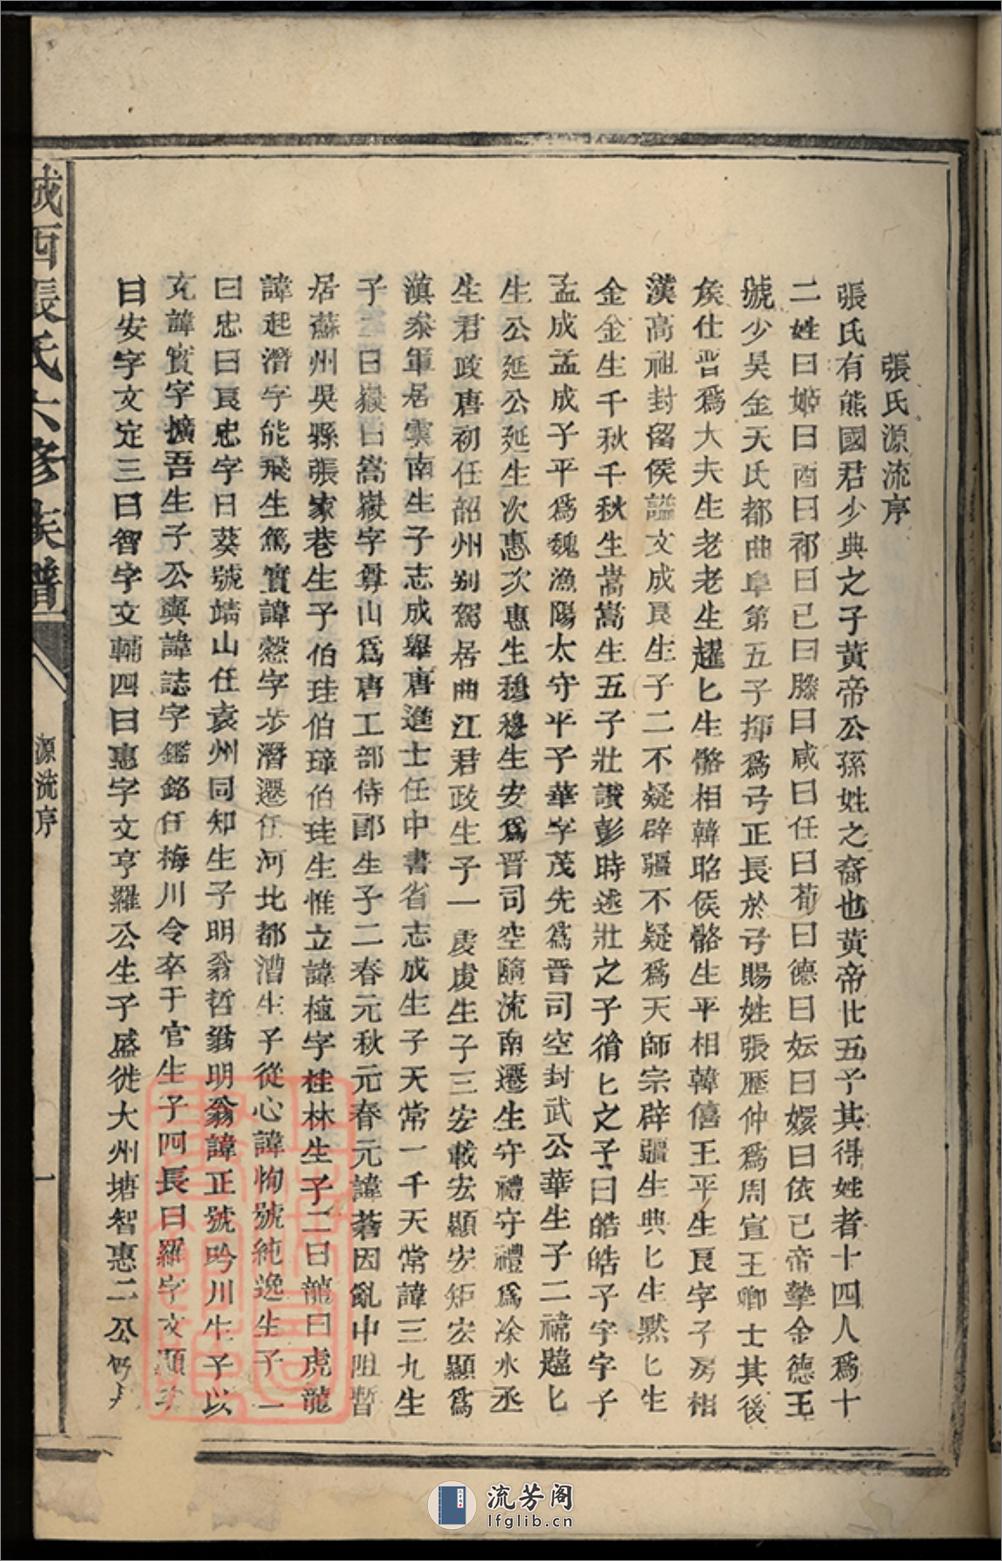 張氏源流序
張氏有熊國君少典之子黃帝公孫姓之裔也黃帝廿五子其得姓者十四人爲十
二姓曰姬曰酉曰祁曰己曰滕曰咸曰任曰荀曰德曰妘曰嬛曰依己帝摯金德王
號少昊金天氏都曲阜第五子揮爲弓正長於弓賜姓張歷仲爲周宣王卿士其後
矦仕晋爲大夫生老老生趯匕生骼相韓昭侯骼生平相韓僖王平生良字子房相
漢高祖封留侯諡文成良生子二不疑辟疆不疑爲天師宗辟疆生典匕生默匕生
金金生千秋千秋生嵩嵩生五子壯讚彭時述壯之子徟匕之子曰皓皓子宇字子
孟成孟成子平爲魏漁陽太守平子華字茂先爲晋司空封武公華生子二禕韙匕
生公延公延生次惠次惠生穆穆生安爲晋司空隨流南遷生守禮守禮爲凃水丞
生君政唐初任韶州别駕居曲江君政生子一虔虔生子三安載宏顯安矩宏顯爲
滇叅軍居雲南生子志成舉唐進士任中書省志成生子天常一千天常諱三九生
子二曰嶽曰嵩嶽字尊山爲唐工部侍郎生子二春元秋元春元諱蒼因亂中阻暫
居蘇州吳縣張家巷生子伯珪伯璋伯珪生惟立諱植字桂林生子二曰龍曰虎龍
諱起潛字能飛生篤實諱愨字步潛遷任河北都漕生子從心諱恂號純逸生子二
曰忠曰良忠字曰葵號靖山任袁州同知生子明翁哲翁明翁諱正號吟川生子以
充諱實字擴吾生子公輿諱誌字鑑銘任梅川令卒于官生子阿長曰羅字文顯次
曰安字文定三曰智字文輔四曰惠字文亨羅公生子盛徙大州塘智惠二公仍
城西張氏六修族譜
源流序
一
流芳阁
lfglib.cn